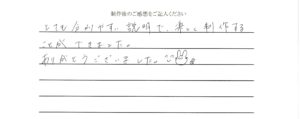 制作後のご感想をご記入ください
とても分かりやすい説明で楽しく制作する
ことができました。
ありがとうございました。